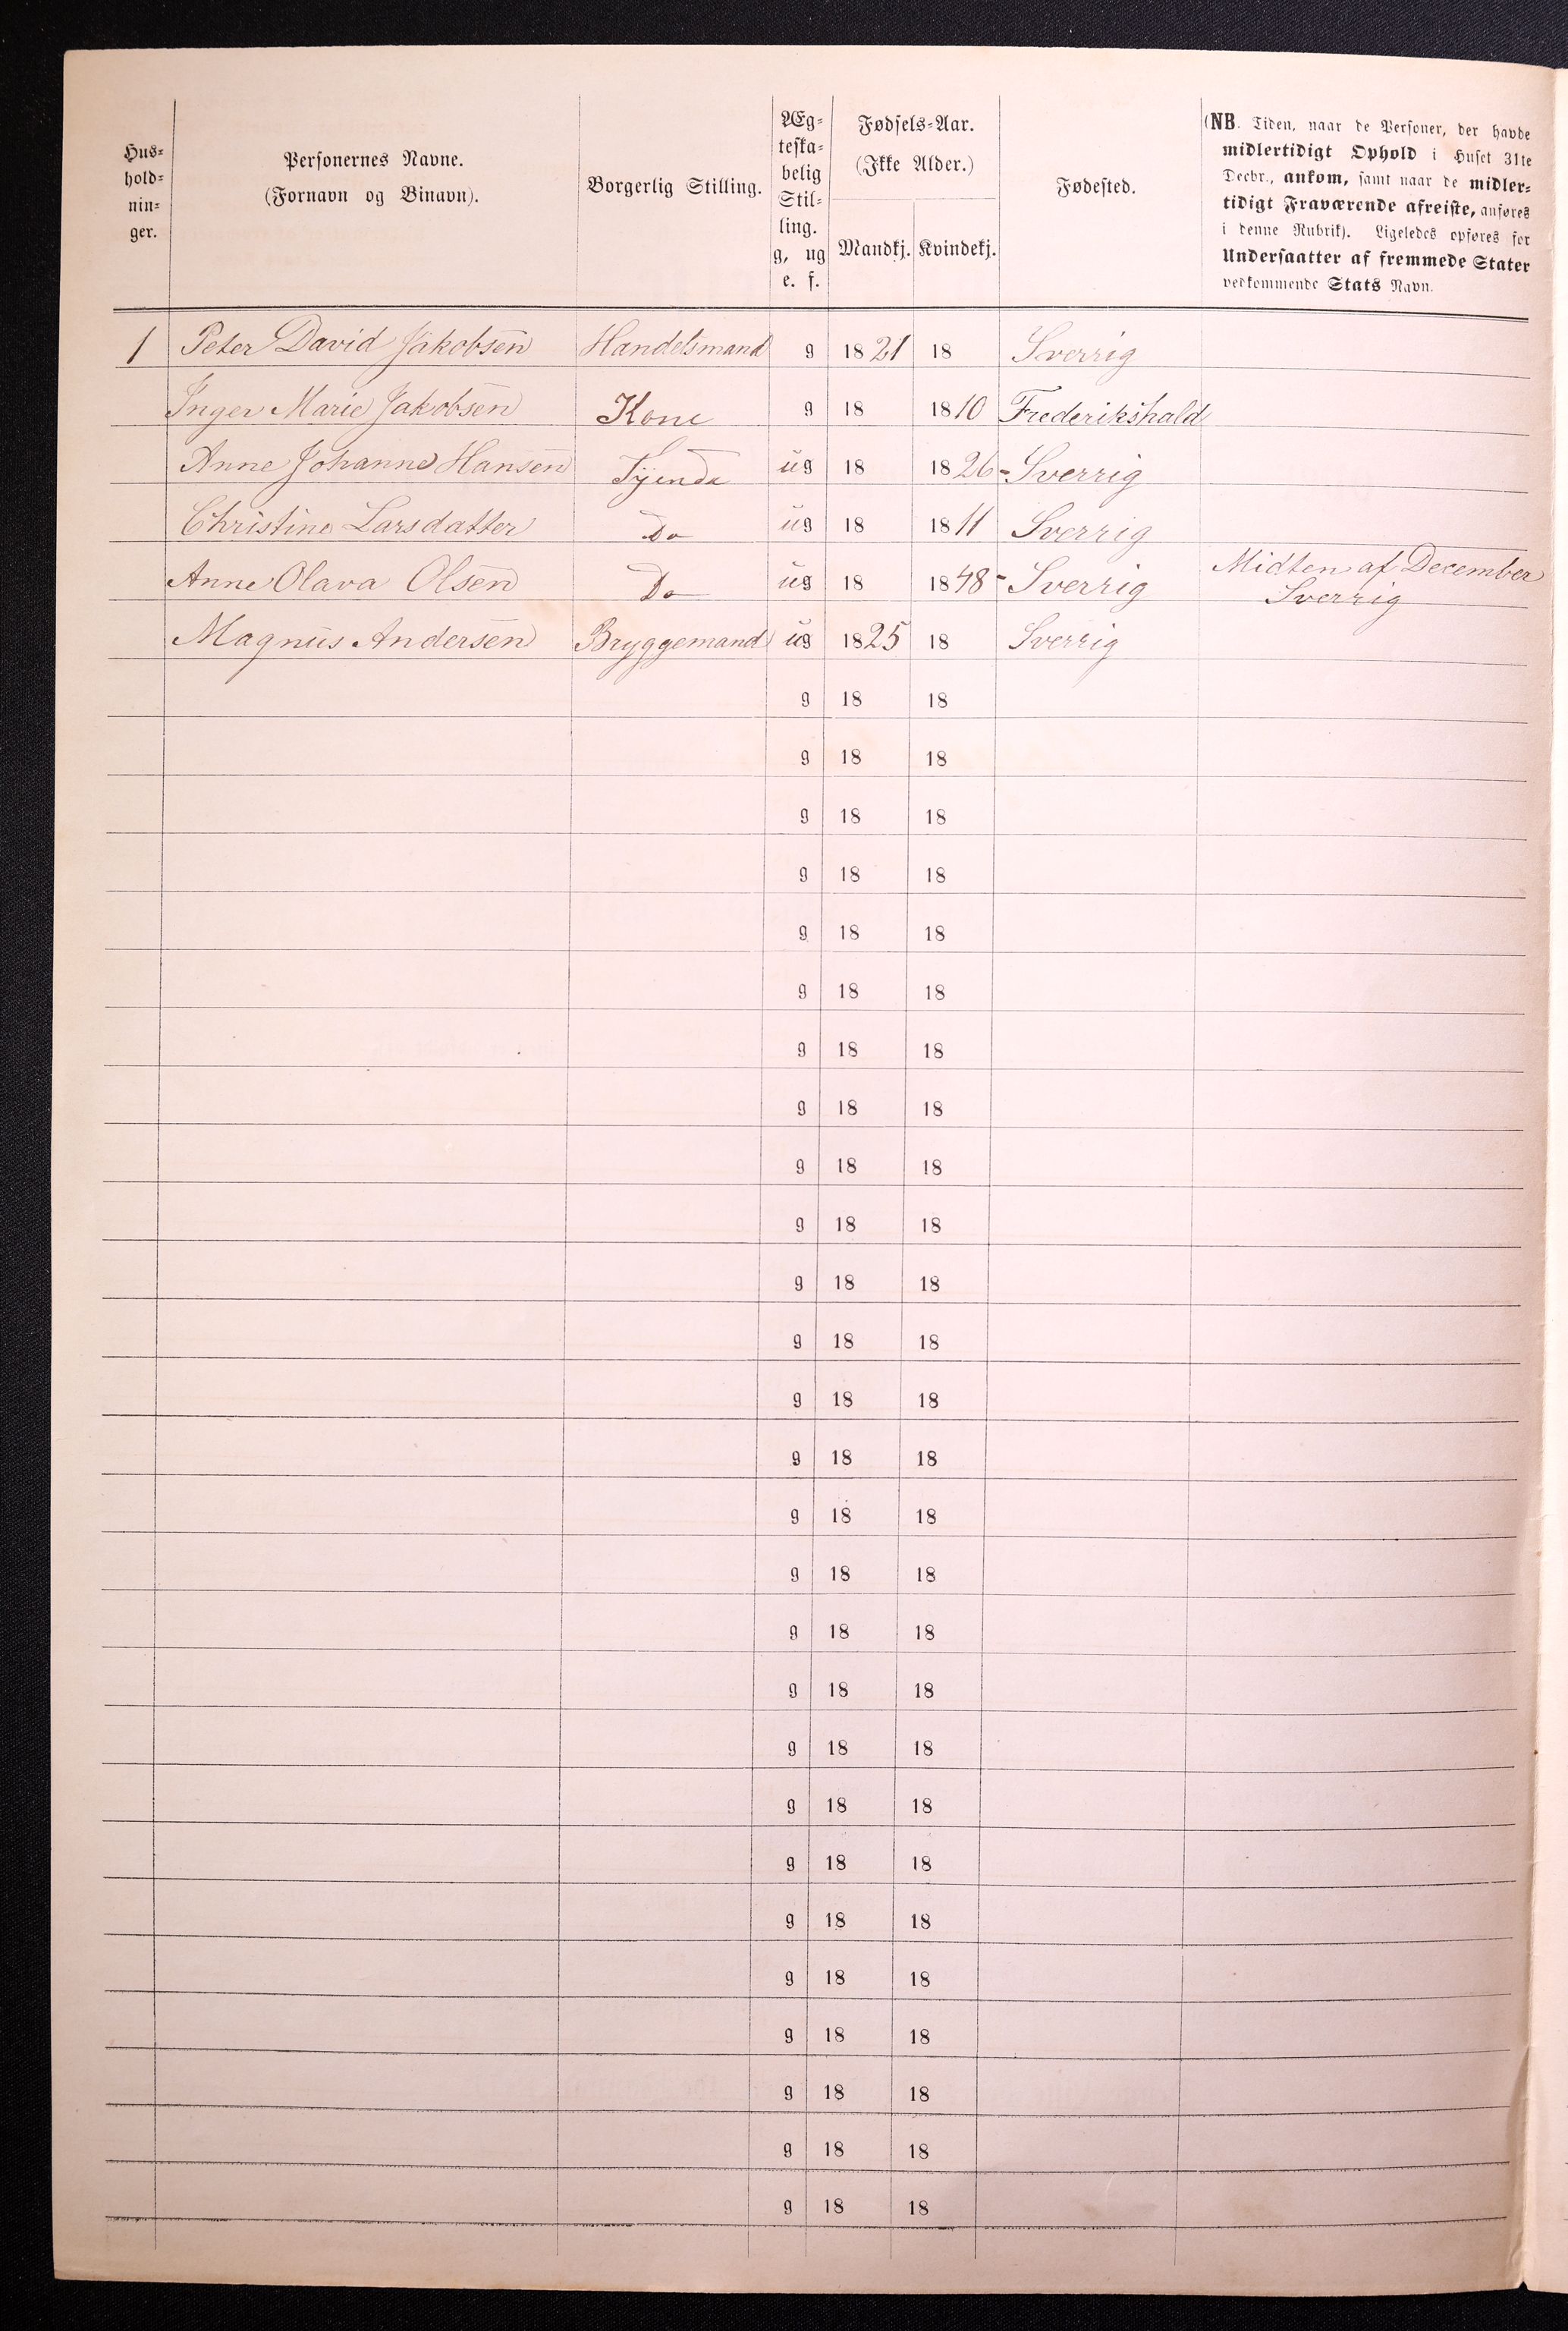 Hus-
hold-
nin-
ger.
Personernes Navne.
(Fornavn og Binavn).
Borgerlig Stilling.
Æg-
teska-
belig
Stil-
ling.
g, ug
e. f.
Fødsels-Aar.
(Ikke Alder.)
Mandkj. Kvindekj.
Fødested.
(NB. Tiden, naar de Personer, der havde
midlertidigt Ophold i Huset 31te
Decbr., ankom, samt naar de midler-
tidigt Fraværende afreiste, anføres
i denne Rubrik). Ligeledes opføres for
Undersaatter af fremmede Stater
vedkommende Stats Navn.
1 Peter David Jakobsen Handelsmand g 1821 18 Sverrig
Inger Marie Jakobsen Kone g 18 1810 Frederikshald
Anne Johanne Hansen Tyende ug 18 1826 - Sverrig
Christine Larsdatter Do ug 18 1811 Sverrig
Anne Olava Olsen Do ug 18 1848 - Sverrig Midten af December
Sverrig
Magnus Andersen Bryggemand ug 1825 18 Sverrig
g 18 18
g 18 18
g 18 18
g 18 18
g 18 18
g 18 18
g 18 18
g 18 18
g 18 18
g 18 18
g 18 18
g 18 18
g 18 18
g 18 18
g 18 18
g 18 18
g 18 18
g 18 18
g 18 18
g 18 18
g 18 18
g 18 18
g 18 18
g 18 18
g 18 18
g 18 18
g 18 18